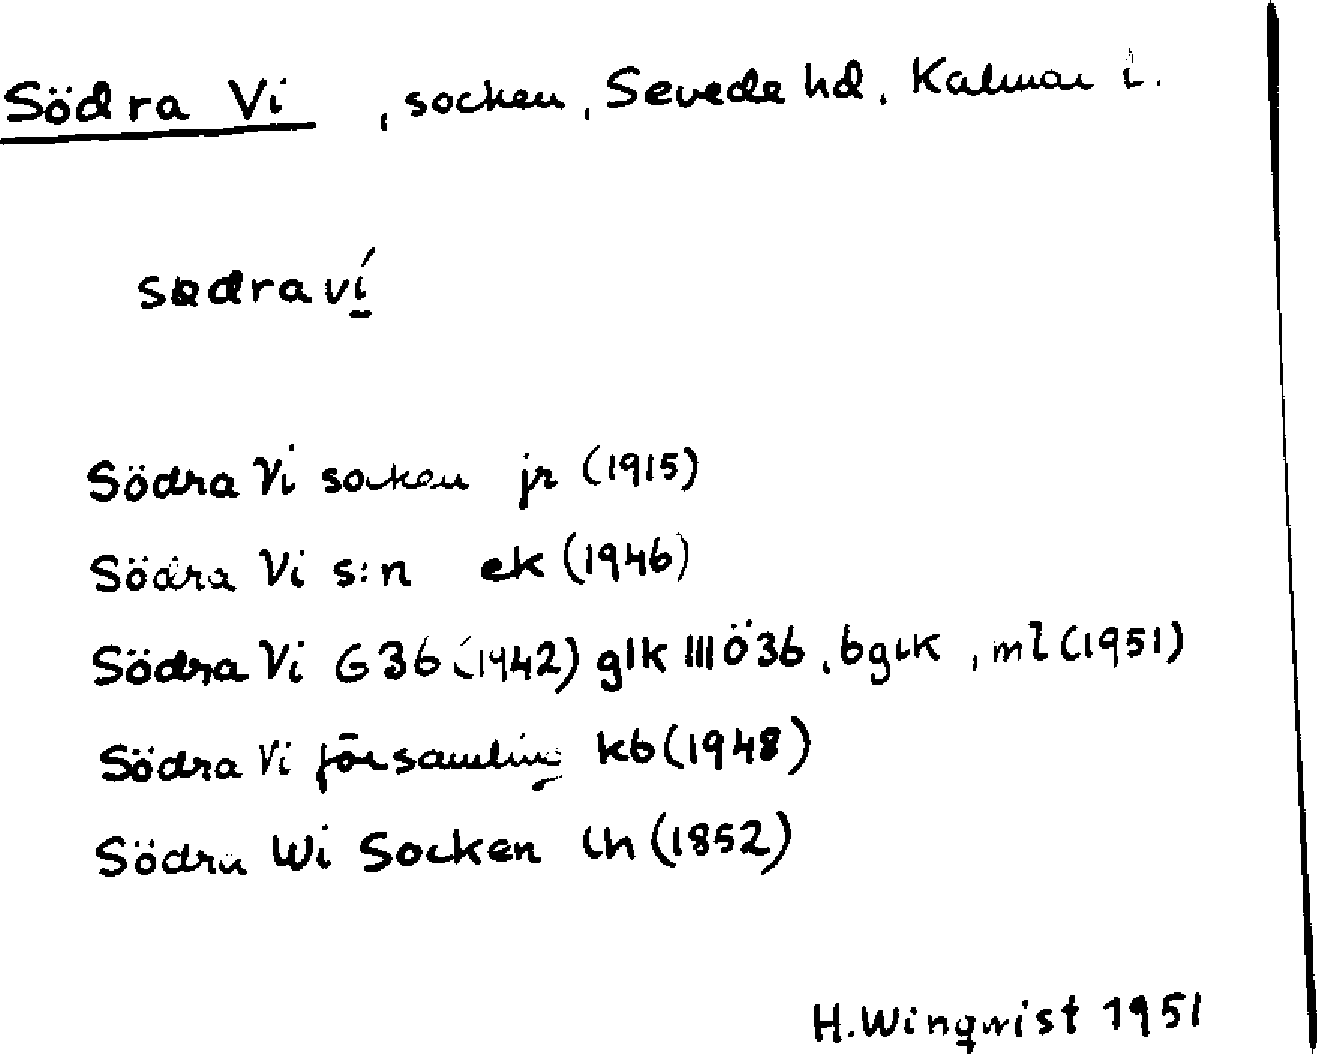 Södra Vi , socken, Sevede hd, Kalmar l.
sødraví
Södra Vi socken jr (1915)
Södra Vi s:n ek (1946)
Södra Vi G 36 (1942) glk III Ö 36, bglk, ml (1951)
Södra Vi församling kb (1948)
Södra Wi Socken lh (1852)
H. Winqvist 1951